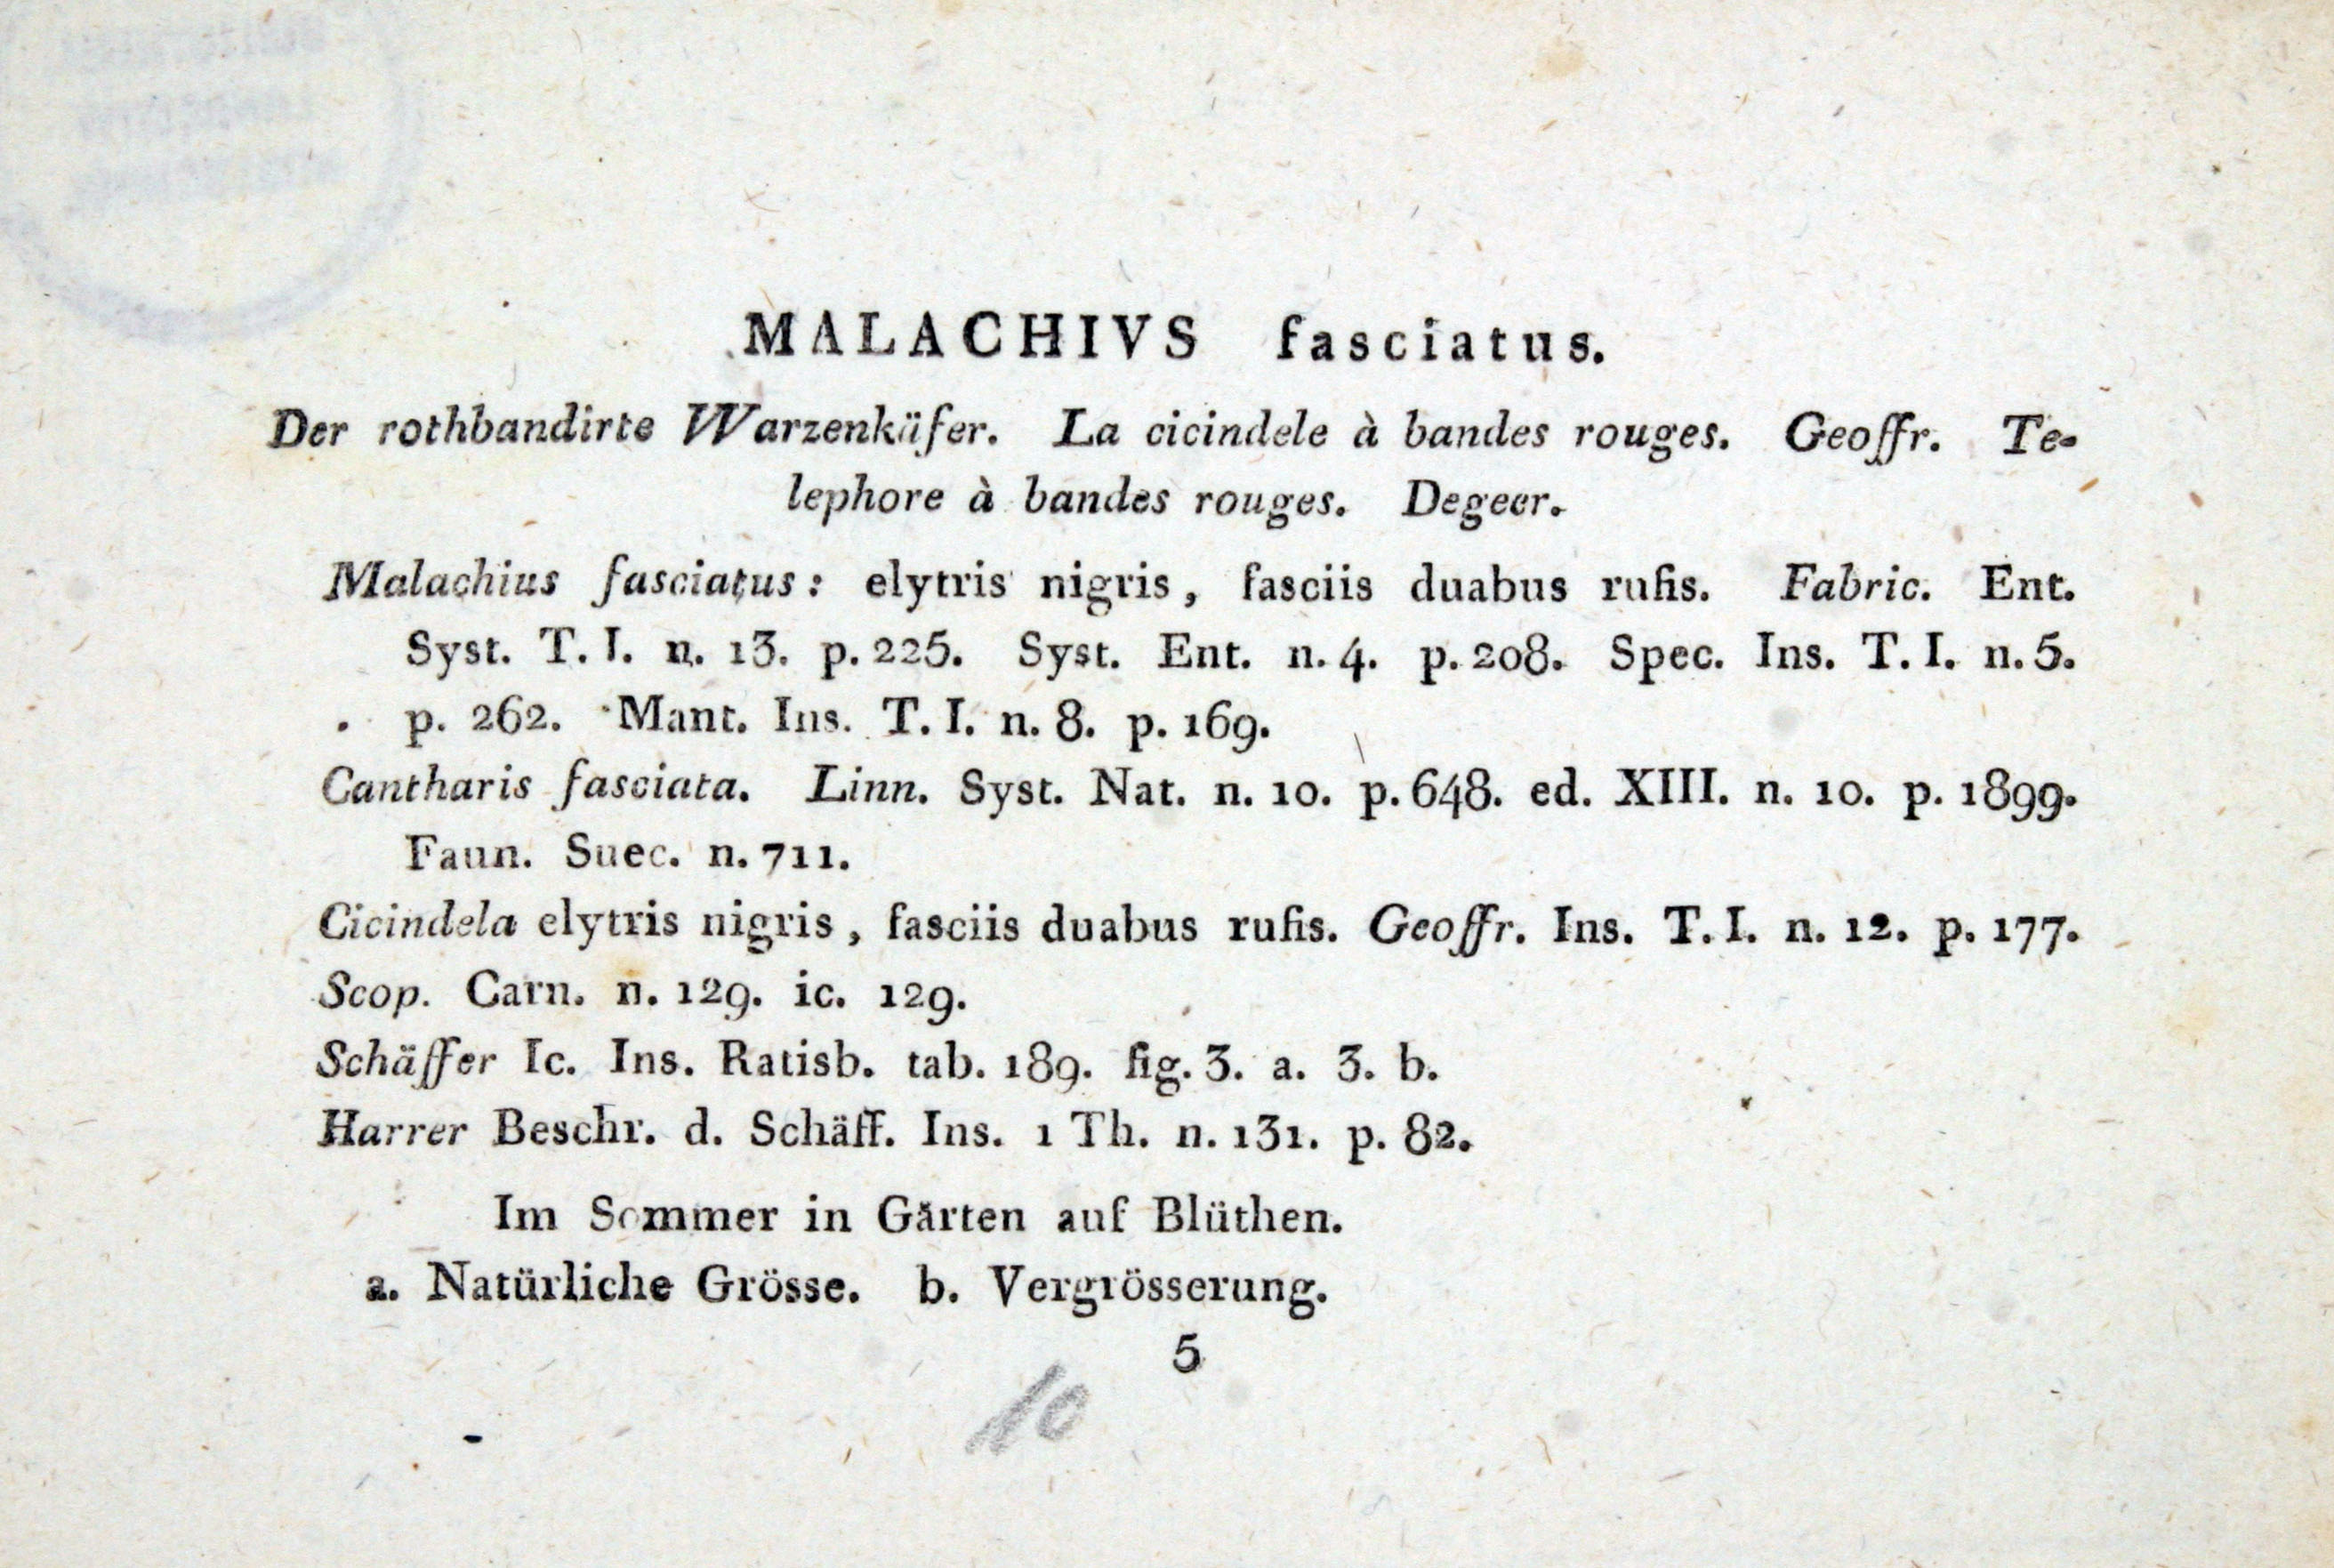 MALACHIVS fasciatus.
Der rothbandirte Warzenkäfer. La cicindele à bandes rouges. Geoffr. Te-
lephore à bandes rouges. Degeer.
Malachius fasciatus: elytris nigris, fasciis duabus rufis. Fabric. Ent.
Syst. T. I. n. 13. p. 225. Syst. Ent. n. 4. p. 208. Spec. Ins. T. I. n. 5.
p. 262. Mant. Ins. T. I. n. 8. p. 169.
Cantharis fasciata. Linn. Syst. Nat. n. 10. p. 648. ed. XIII. n. 10. p. 1899.
Faun. Suec. n. 711.
Cicindela elytris nigris, fasciis duabus rufis. Geoffr. Ins. T. I. n. 12. p. 177.
Scop. Carn. n. 129. ic. 129.
Schäffer Ic. Ins. Ratisb. tab. 189. fig. 3. a. 3. b.
Harrer Beschr. d. Schäff. Ins. 1 Th. n. 131. p. 82.
Im Sommer in Gärten auf Blüthen.
a. Natürliche Grösse. b. Vergrösserung.
5
10